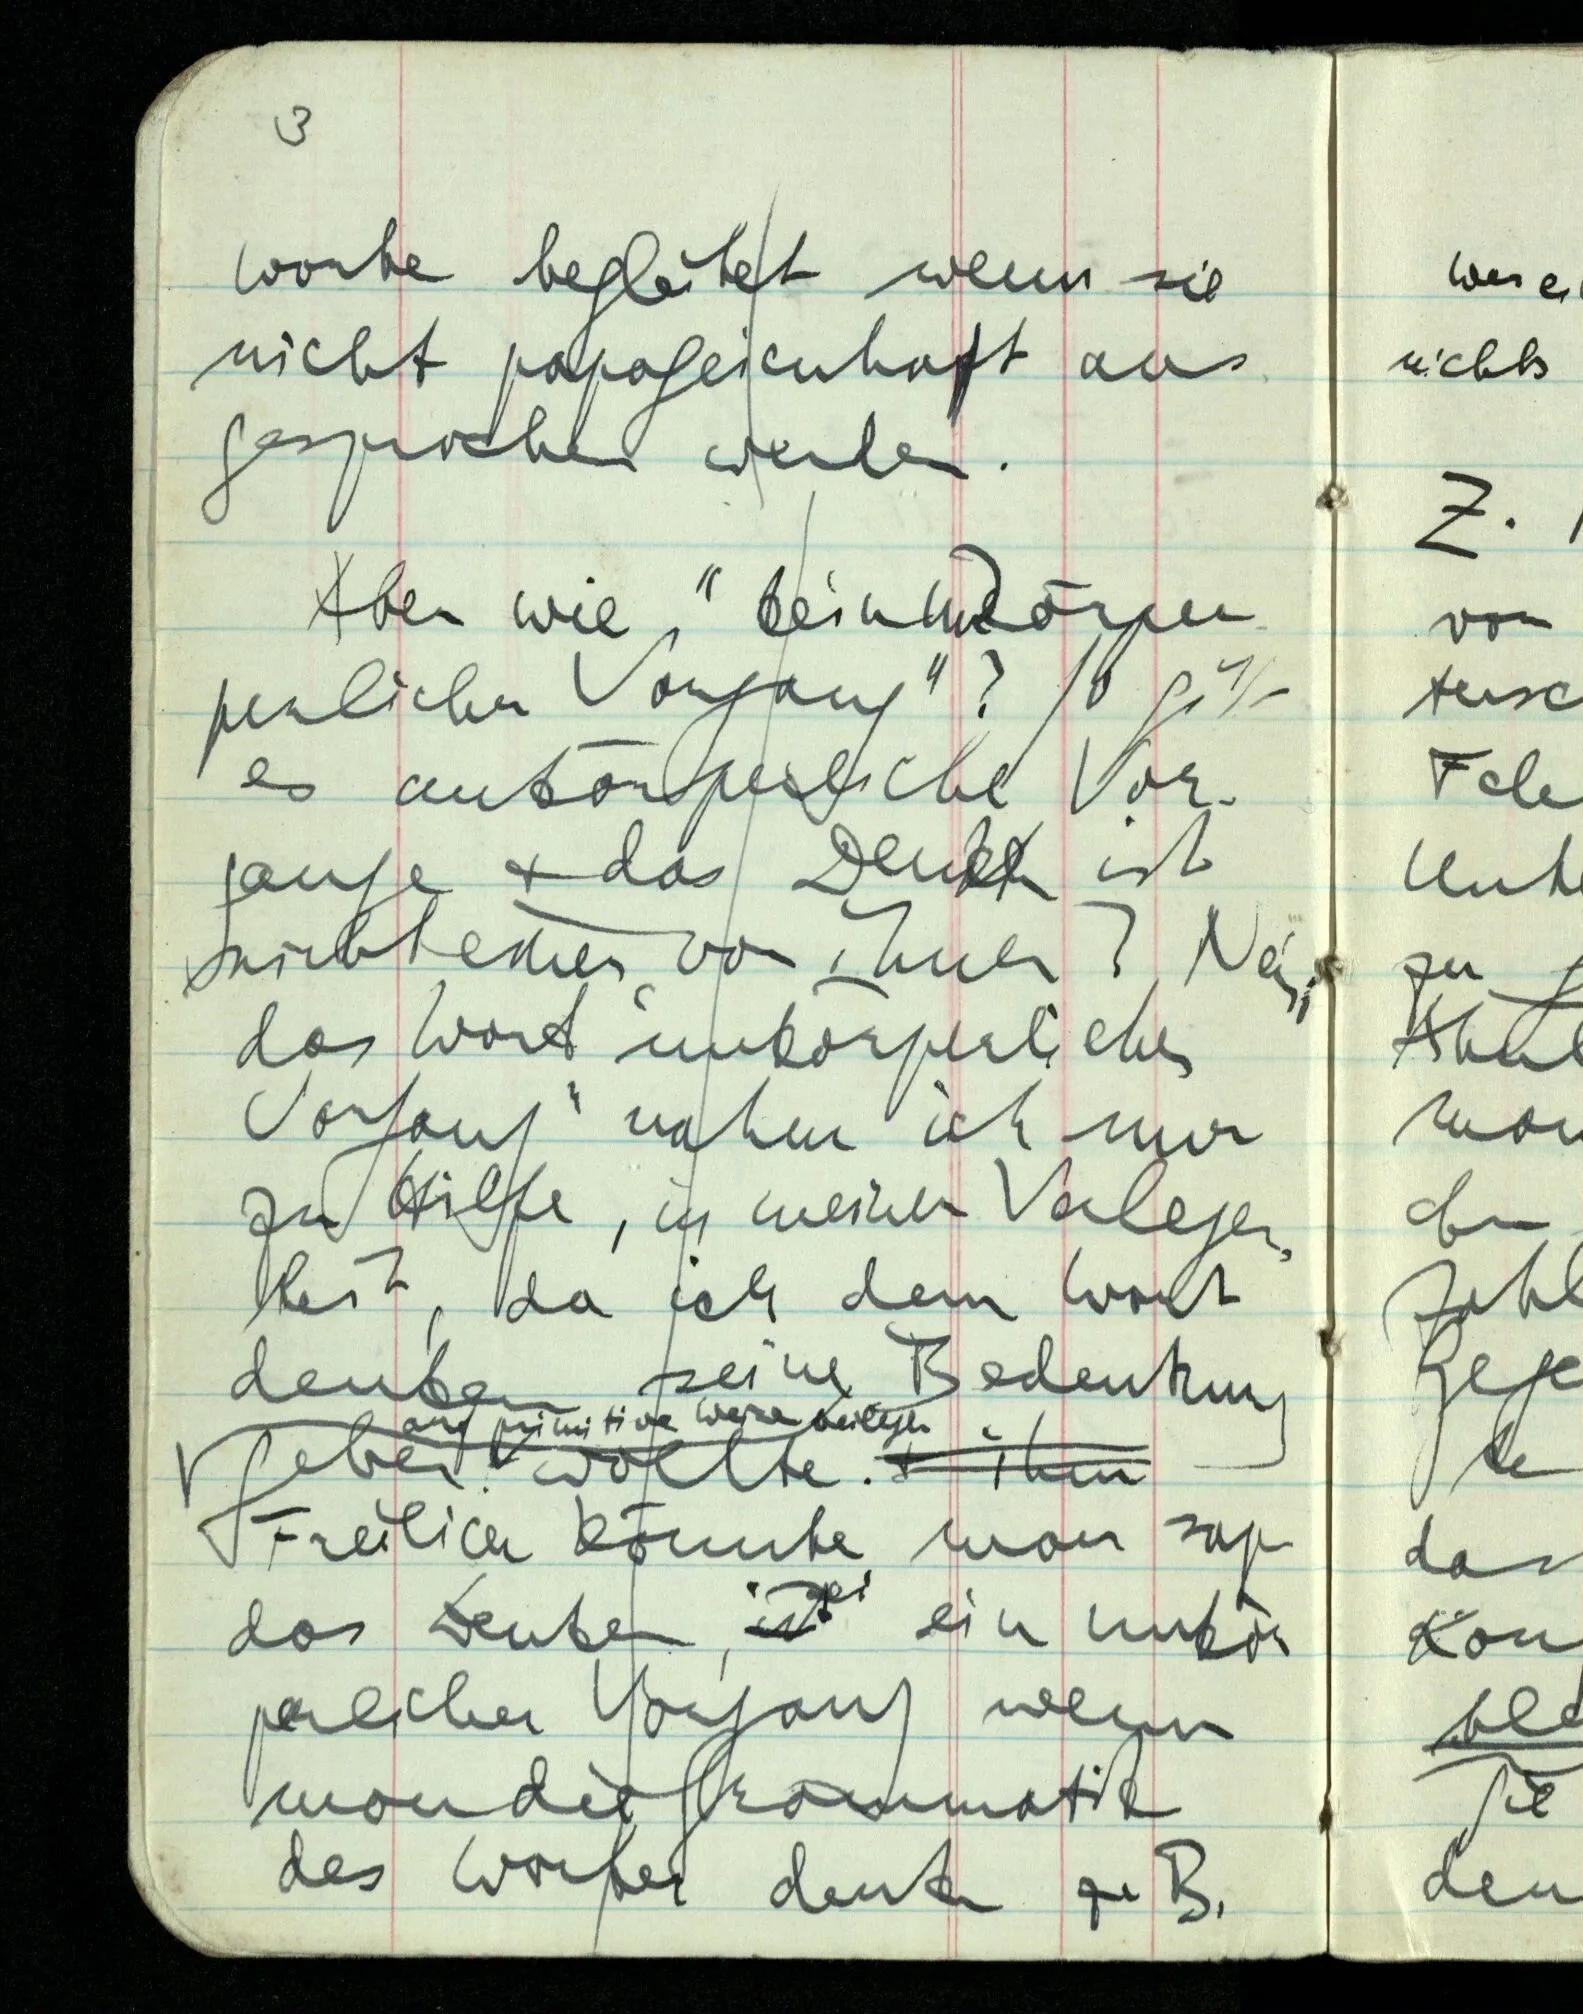 3
worte begleitet wenn sie
nicht papageienhaft aus
gesprochen werden.
Aber wie, "kein unkörper
perlicher Vorgang"? So gibt
es unkörperliche Vor-
gänge & das Denken ist
nicht einer von ihnen? Nein,
das Wort "unkörperlicher
Vorgang" nahm ich mir
zu Hilfe, in meiner Verlegen
heit, da ich dem Wort
denken seine Bedeutung
auf primitive Weise beilegen
geben wollte. & ihm
Freilich könnte man sagen
das Denken ist sei ein unkör
perlicher Vorgang wenn
man die Grammatik
des Wortes denken z.B.
nichts
Z.
von
zu
den
das